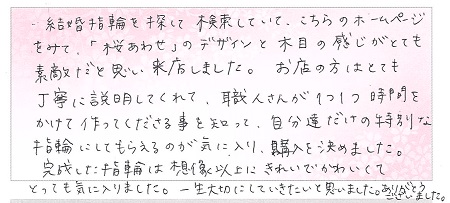 結婚指輪を探して検索していて、こちらのホームページ
をみて、「桜あわせ」のデザインと木目の感じがとても
素敵だと思い来店しました。 お店の方はとても
丁寧に説明してくれて、職人さんが1つ1つ時間を
かけて作ってくださる事を知って、自分達だけの特別な
指輪にしてもらえるのが気に入り、購入を決めました。
完成した指輪は想像以上にきれいでかわいくて
とっても気に入りました。一生大切にしていきたいと思いました。ありがとう
ございました。